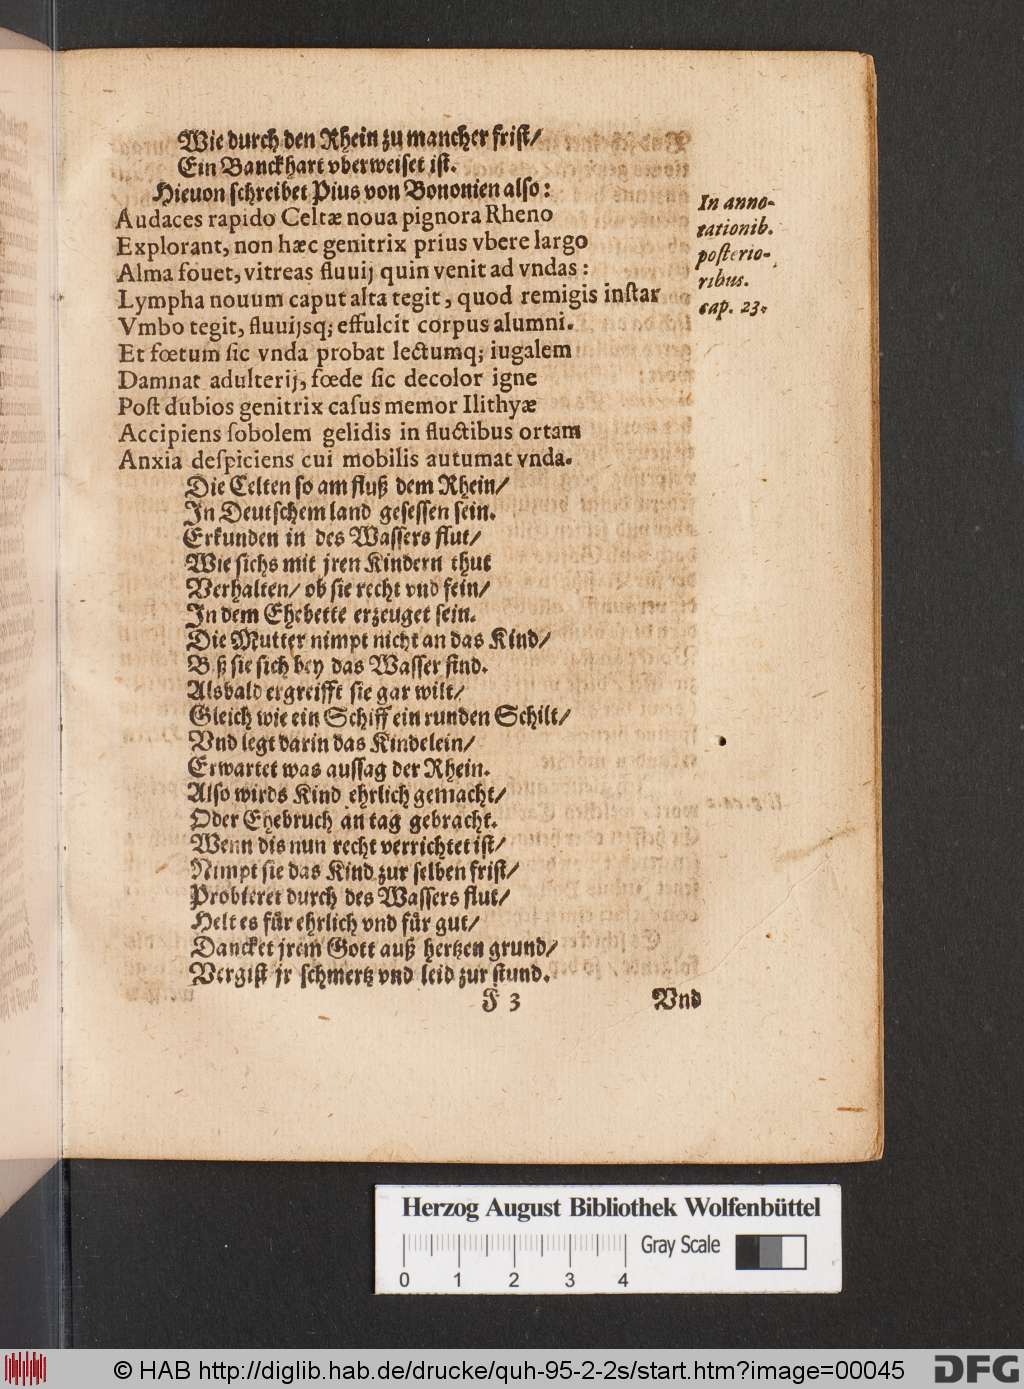 Wie durch den Rhein zu mancher frist/
Ein Banckhart vberweiset ist.
Hieuon schreibet Pius von Bononien also:
Audaces rapido Celtæ noua pignora Rheno
Explorant, non hæc genitrix prius vbere largo
Alma fouet, vitreas fluuij quin venit ad vndas:
Lympha nouum caput alta tegit, quod remigis inſtar
Vmbo tegit, fluuijsq; effulcit corpus alumni.
Et fœtum ſic vnda probat lectumq; iugalem
Damnat adulterij, fœde ſic decolor igne
Poſt dubios genitrix caſus memor Ilithyæ
Accipiens ſobolem gelidis in fluctibus ortam
Anxia deſpiciens cui mobilis autumat vnda.
In anno-
tationib.
poſterio-
ribus.
cap. 23.
Die Celten ſo am fluß dem Rhein/
In Deutſchem land geſeſſen ſein.
Erkunden in des Waſſers flut/
Wie ſichs mit jren Kindern thut
Verhalten/ ob ſie recht vnd fein/
In dem Ehebette erzeuget ſein.
Die Mutter nimpt nicht an das Kind/
B ß ſie ſich bey das Waſſer find.
Alsbald ergreifft ſie gar wilt/
Gleich wie ein Schiff ein runden Schilt/
Vnd legt darin das Kindelein/
Erwartet was auſſag der Rhein.
Alſo wirds Kind ehrlich gemacht/
Oder Ehebruch an tag gebracht.
Wenn dis nun recht verrichtet iſt/
Nimpt ſie das Kind zur ſelben friſt/
Probieret durch des Waſſers flut/
Helt es für ehrlich vnd für gut/
Dancket jrem Gott auß hertzen grund/
Vergiſt jr ſchmertz vnd leid zur ſtund.
F 3 Vnd
Herzog August Bibliothek Wolfenbüttel
Gray Scale
0 1 2 3 4
© HAB http://diglib.hab.de/drucke/quh-95-2-2s/start.htm?image=00045
DFG